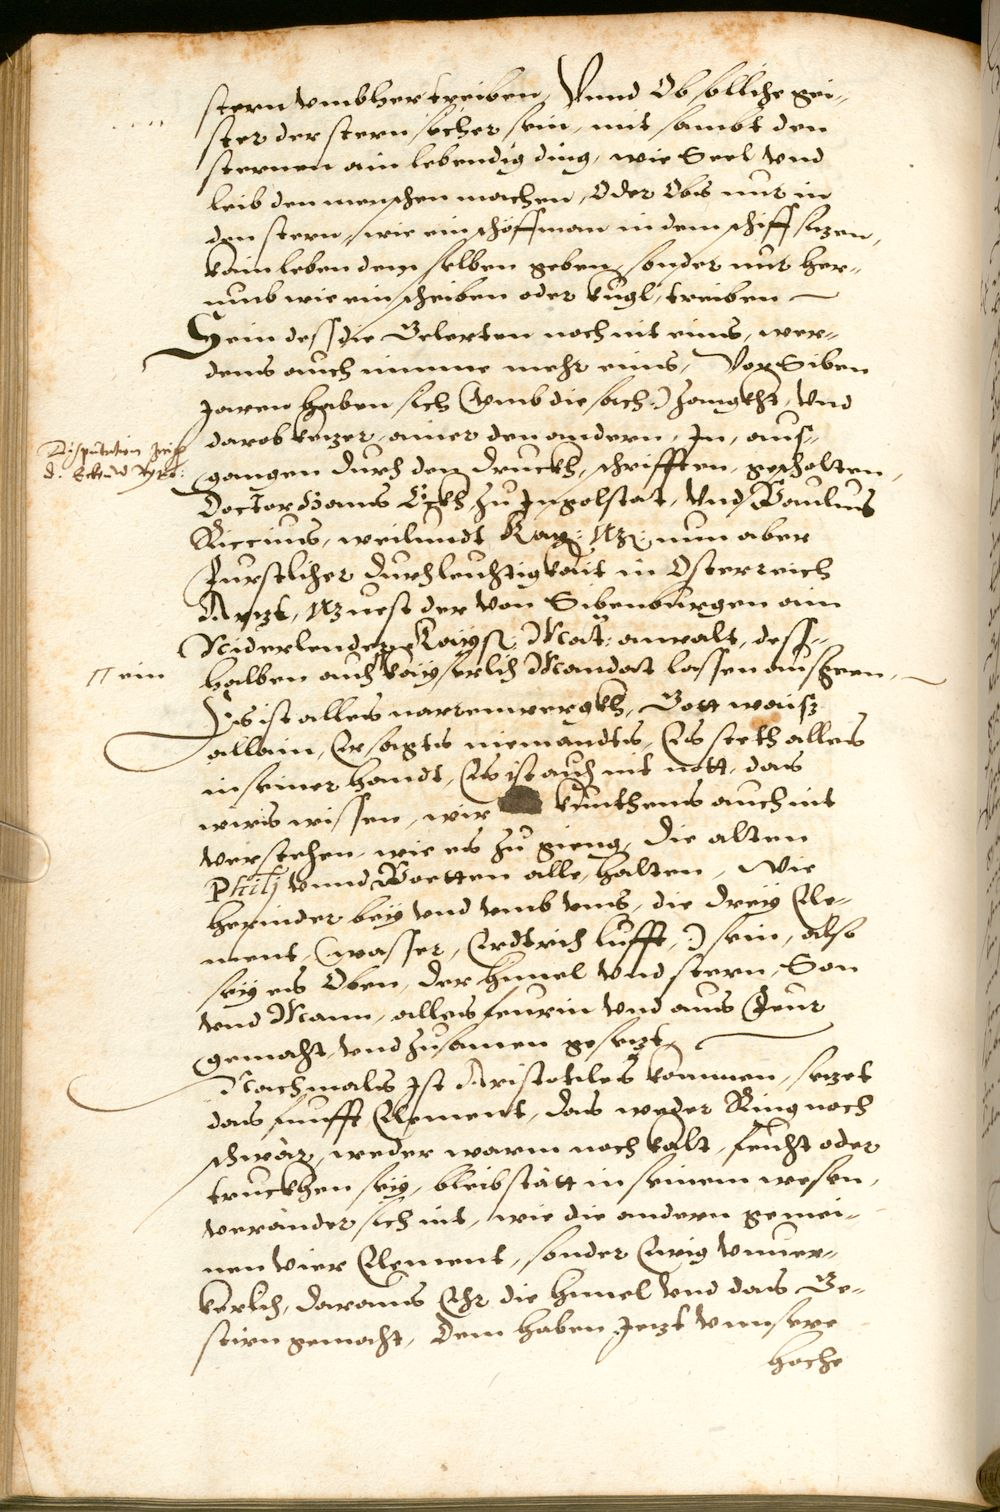 stern vmbher treiben, Vnnd Ob sölliche gei-
ster der stern secher sein, mit sambt den
sternen ain lebendig ding, wie Seel vnd
leib den menschen machen, Oder Obs nur in
den stern, wie ein schöffman in dem schiff sizen,
kain leben demselben geben, sonder nur her-
umb wie ein scheiben oder kugl, treiben
Sein dess die Gelerten noch nit eins, wer-
dens auch nimme mehr eins, Vor Siben
Jaren haben sich (vmb die sach:) zangkht, vnd
darob kezer, ainer den andern, In, aus-
gangen durch den druckh, schrifften, gescholten,
Disputation zwisch
d. Eck vnd Ryci:
Doctor Hanns Eckh zu Ingolstat, vnd Paulus
Riccius, weilundt Kay: Mt: nun aber
Furstlicher Durchleuchtigkait in Osterreich
Arzt, Maz nest der von Sibenburgen ain
Niderlender Kayß: Mat: anwalt, dess-
ein
halben auch kayserlich Mandat lassen ausgeen,
Es ist alles narrenwergkh, Gott waisz
allain, Er sagts niemandts, Es steth alles
in seiner handt, Es ist auch nit nott, das
wirs wissen, wir kunthens auch nit
verstehen, wie es zu gieng, die alten
Philj vnnd Poetten alle, halten, Wie
herinder bey vnd vmb vns, die drey Ele-
ment, (wasser, Erdtrich lufft,:) sein, also
sey es Oben, der himel vnd stern, Son
vnd Mann, alles feurin vnd aus Feur
gemacht, vnd zusamen gesezt,
Nachmals Ist Aristotiles kommen, sezet
das funfft Element, das weder Ring noch
schwär, weder warm noch kalt, feucht oder
truckhen sey, bleib stätt in seinem wesen,
verändер sich nit, wie die andern gemei-
nen vier Element, sonder Ewig vnuer-
kerlich, daraus Ehr die himel vnd das Ge-
stirn gemacht, Dem haben Jezt vnnsere
hoche